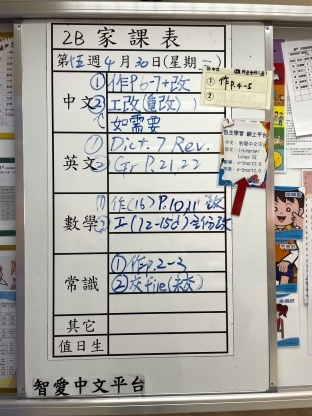 2B 家課表
第伍週4月30日(星期一)
中文
① 作P.6-7+改
② 工改(重改)
如需要
① 作P.4-5
②
自主學習 網上平台
英文
① Dict. 7 Rev.
② Gr P.21,22
數學
① 作(16) P.10,11 改
常識
① 作P.2-3
② 交file(未交)
其它
值日生
智愛中文平台